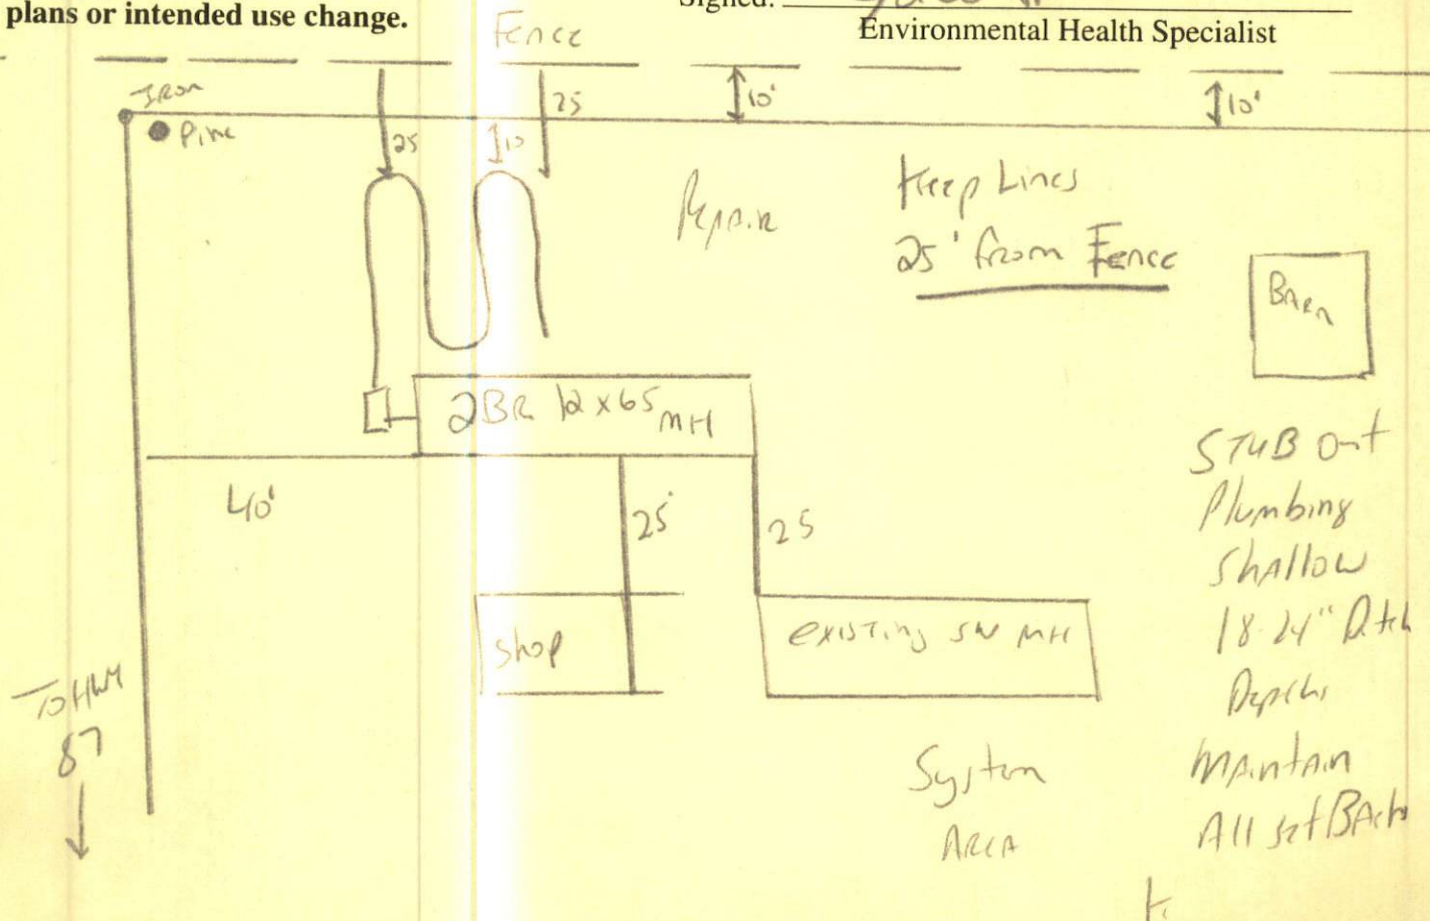 plans or intended use change.
Signed:
Environmental Health Specialist
Fence
Iron
Pine
25
10
25
10'
10'
Repair
Keep Lines
25' from Fence
Barn
2BR 12x65 MH
40'
25'
25
Shop
existing SW MH
To HWY
87
System
Area
STUB Out
Plumbing
Shallow
18-24" Ditch
Depth
Maintain
All setBacks